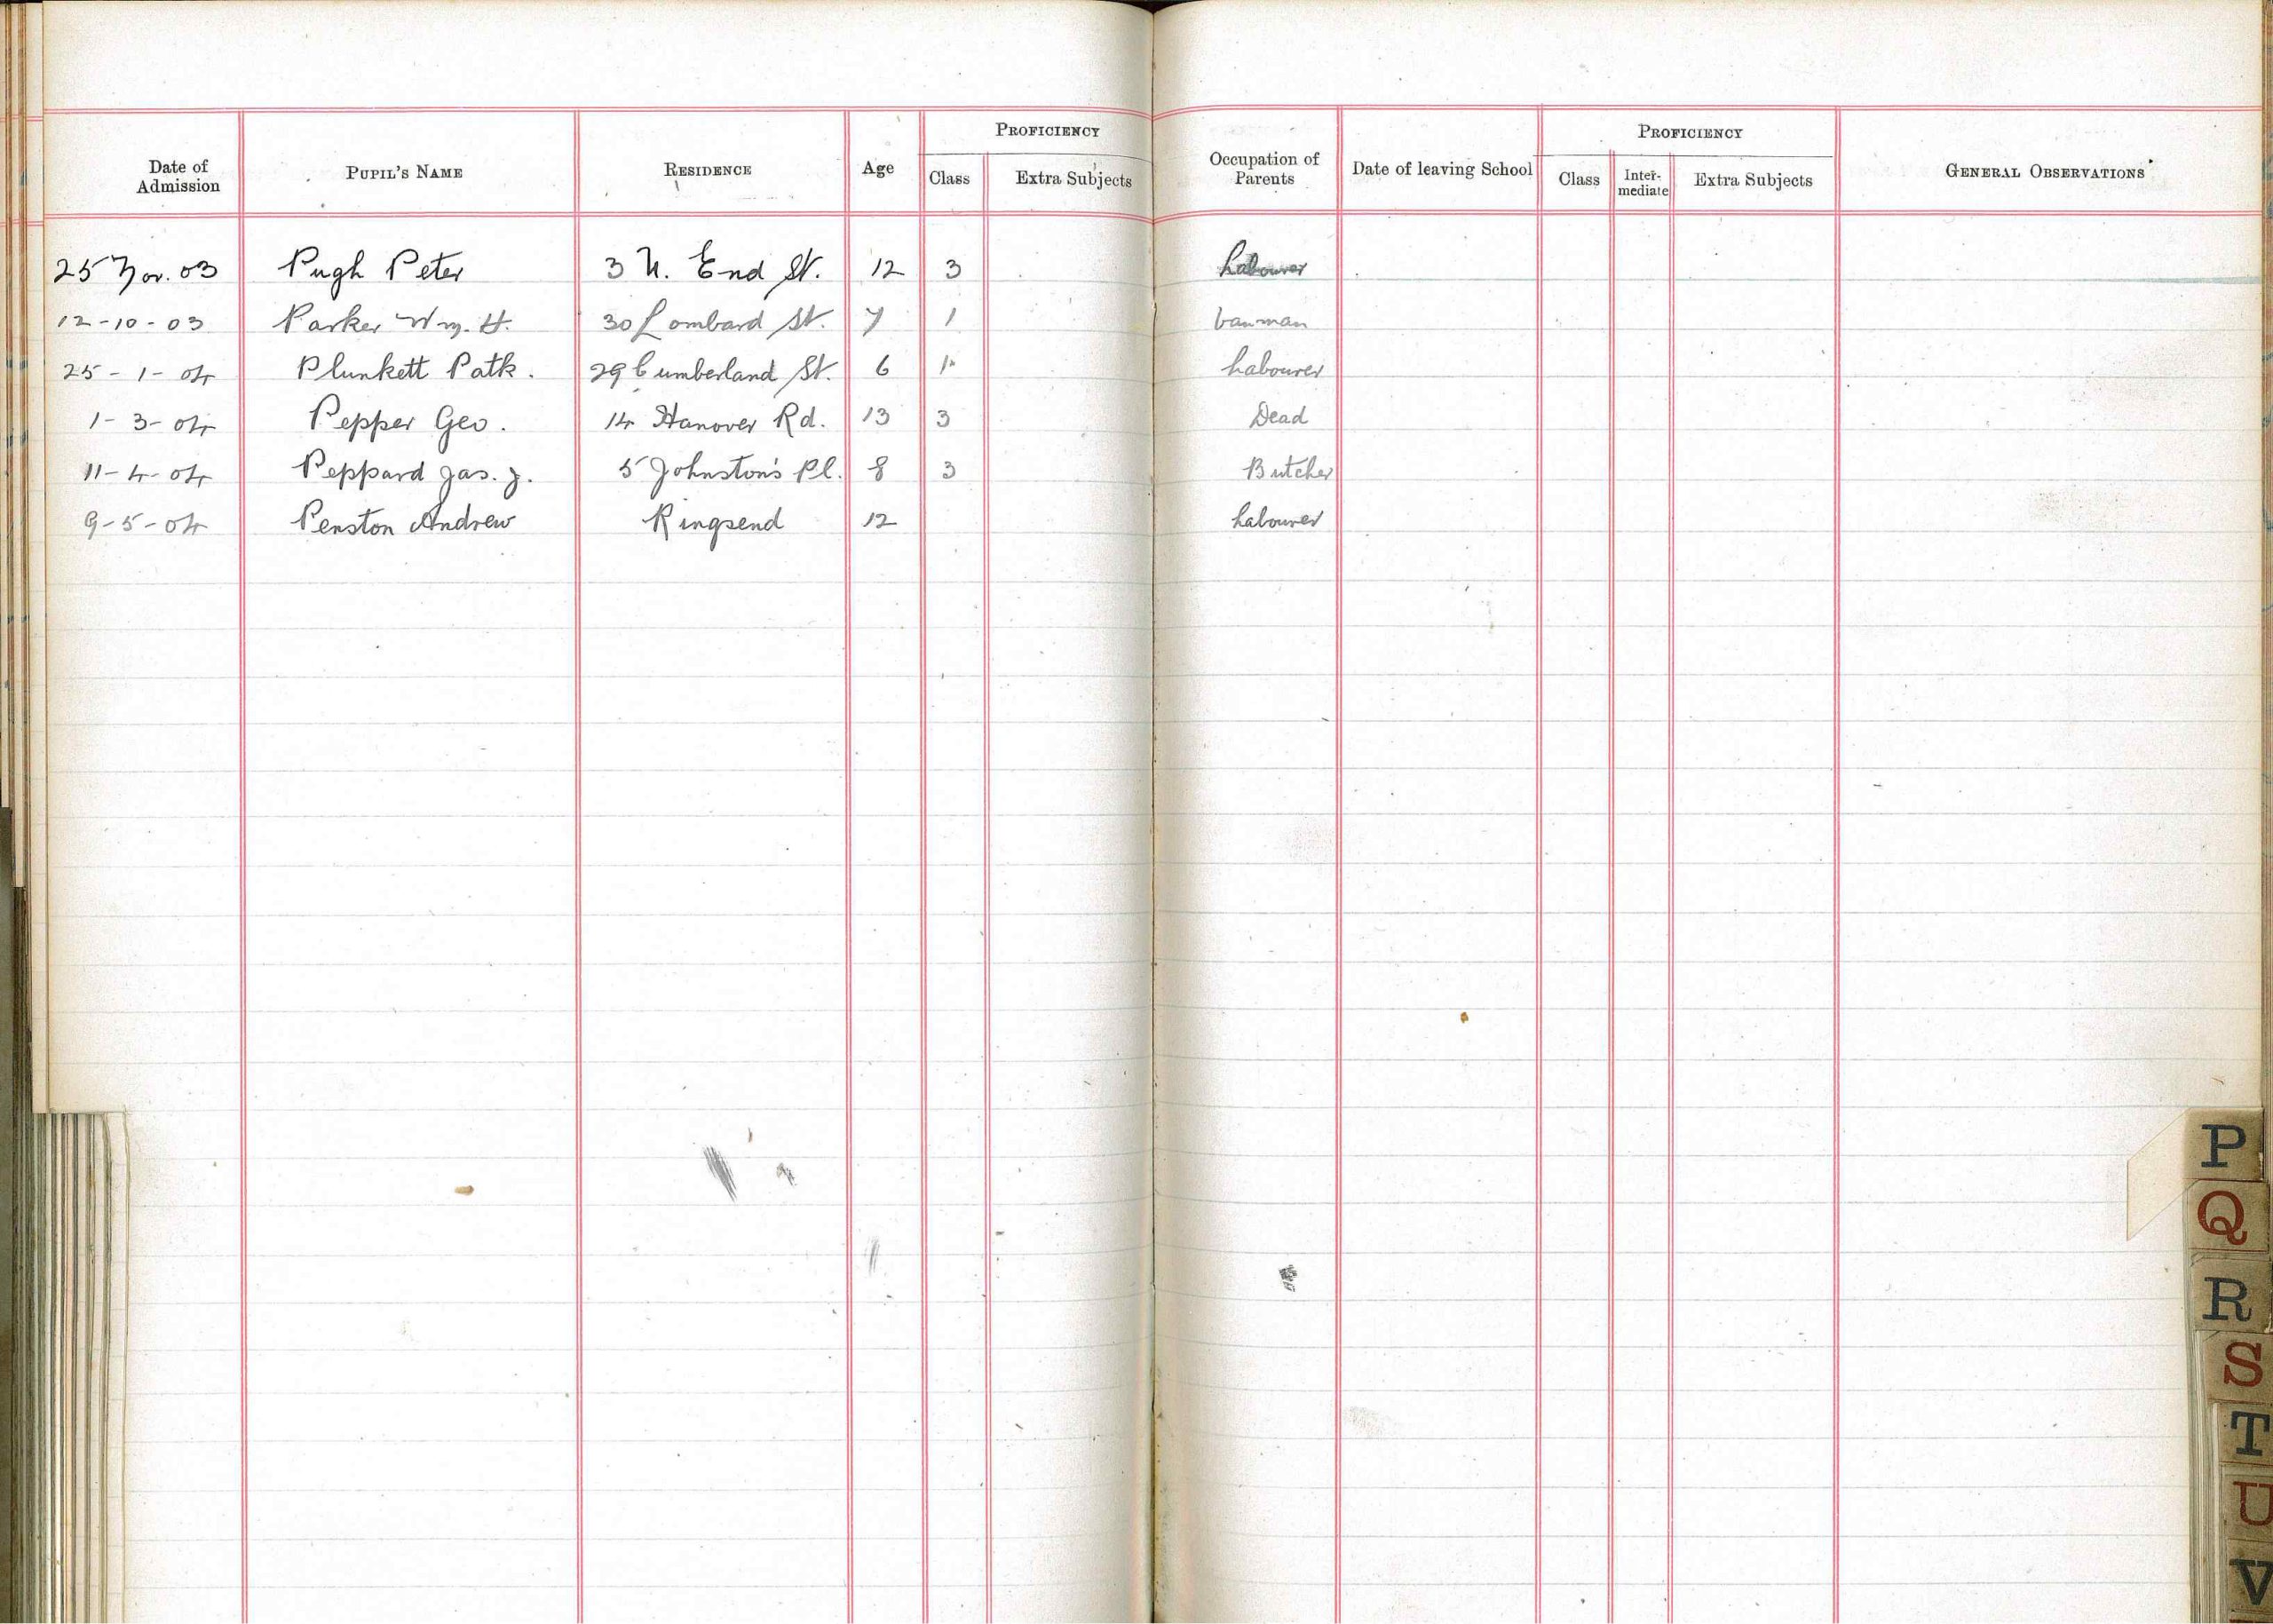 PROFICIENCY PROFICIENCY
Date of Admission PUPIL'S NAME RESIDENCE Age Class Extra Subjects Occupation of Parents Date of leaving School Class Inter-mediate Extra Subjects GENERAL OBSERVATIONS
25 Nov. 03 Pugh Peter 3 U. End St. 12 3 Labourer
12-10-03 Parker Wm. H. 30 Lombard St. 7 1 vanman
25-1-04 Plunkett Patk. 29 Cumberland St. 6 1 Labourer
1-3-04 Pepper Geo. 14 Hanover Rd. 13 3 Dead
11-4-04 Peppard Jas. J. 5 Johnston's Pl. 8 3 Butcher
9-5-04 Penston Andrew Ringsend 12 Labourer
P
Q
R
S
T
U
V